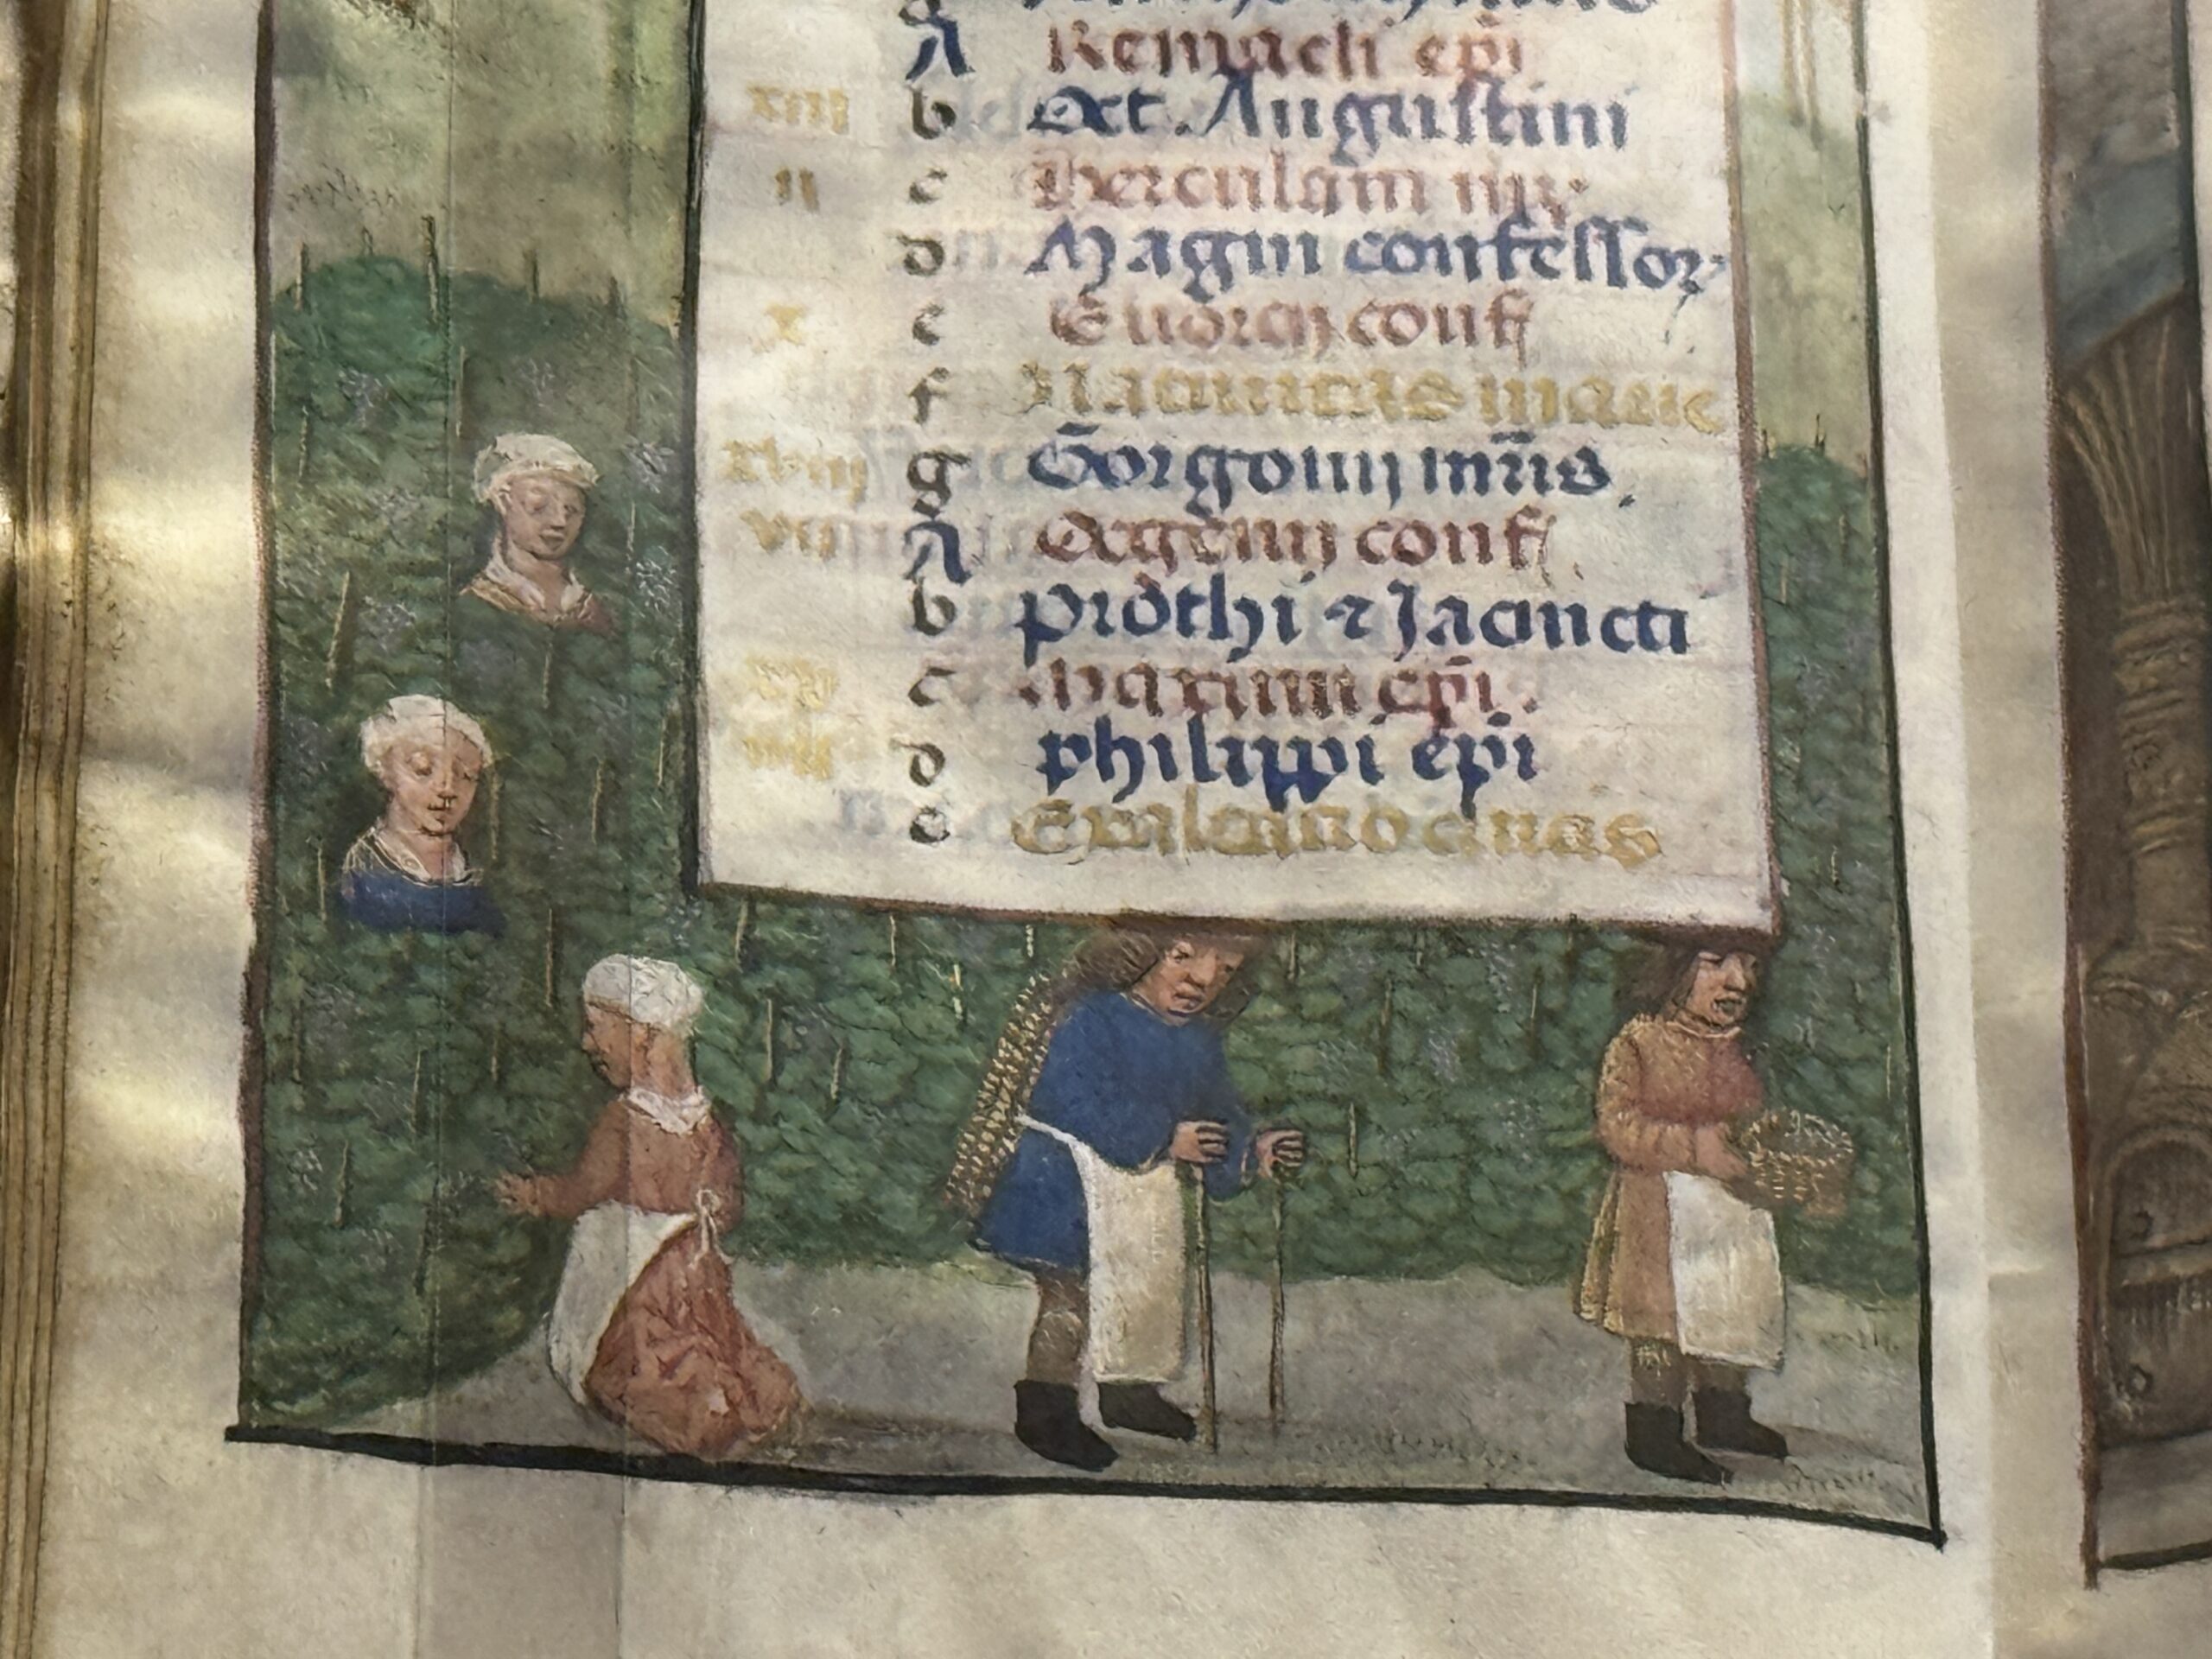 A Remacli epi
xiii b Oct. Augustini
ii c Herculani mr
d Magni confessor
x e Evorcij conf
f Nativitas marie
xviii g Gorgonij mris.
vii A conf
b prothi ⁊ Jacincti
c Maximi epi.
iiii d philippi epi
e Exaltatio